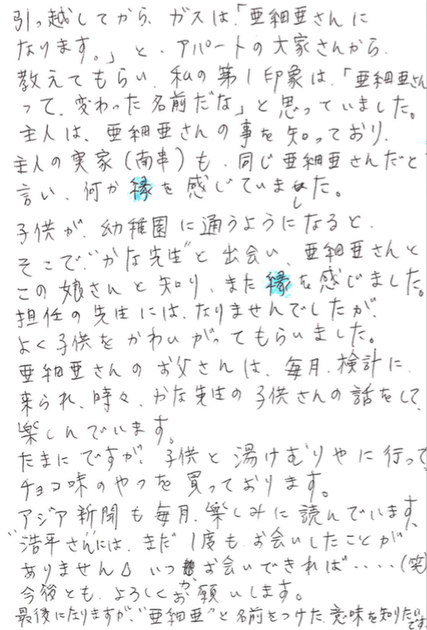 引っ越してから、ガスは、「亜細亜さんに
なります。」と、アパートの大家さんから、
教えてもらい、私の第1印象は、「亜細亜さん
って、変わった名前だな」と思っていました。
主人は、亜細亜さんの事を知っており、
主人の実家(南串)も、同じ亜細亜さんだと
言い、何か縁を感じていました。
子供が、幼稚園に通うようになると、
そこで“かな先生”と出会い、亜細亜さんと
この娘さんと知り、また縁を感じました。
担任の先生には、なりませんでしたが、
よく子供をかわいがってもらいました。
亜細亜さんのお父さんは、毎月、検針に
来られ、時々、かな先生の子供さんの話をして、
楽しんでいます。
たまにですが、子供と湯けむりやに行って
チョコ味のやつを買っております。
アジア新聞も毎月、楽しみに読んでいます。
“浩平さん”には、まだ1度もお会いしたことが
ありません いつかお会いできれば‥‥(笑)
今後とも、よろしくお願いします。
最後になりますが、“亜細亜”と名前をつけた、意味を知りたいです。